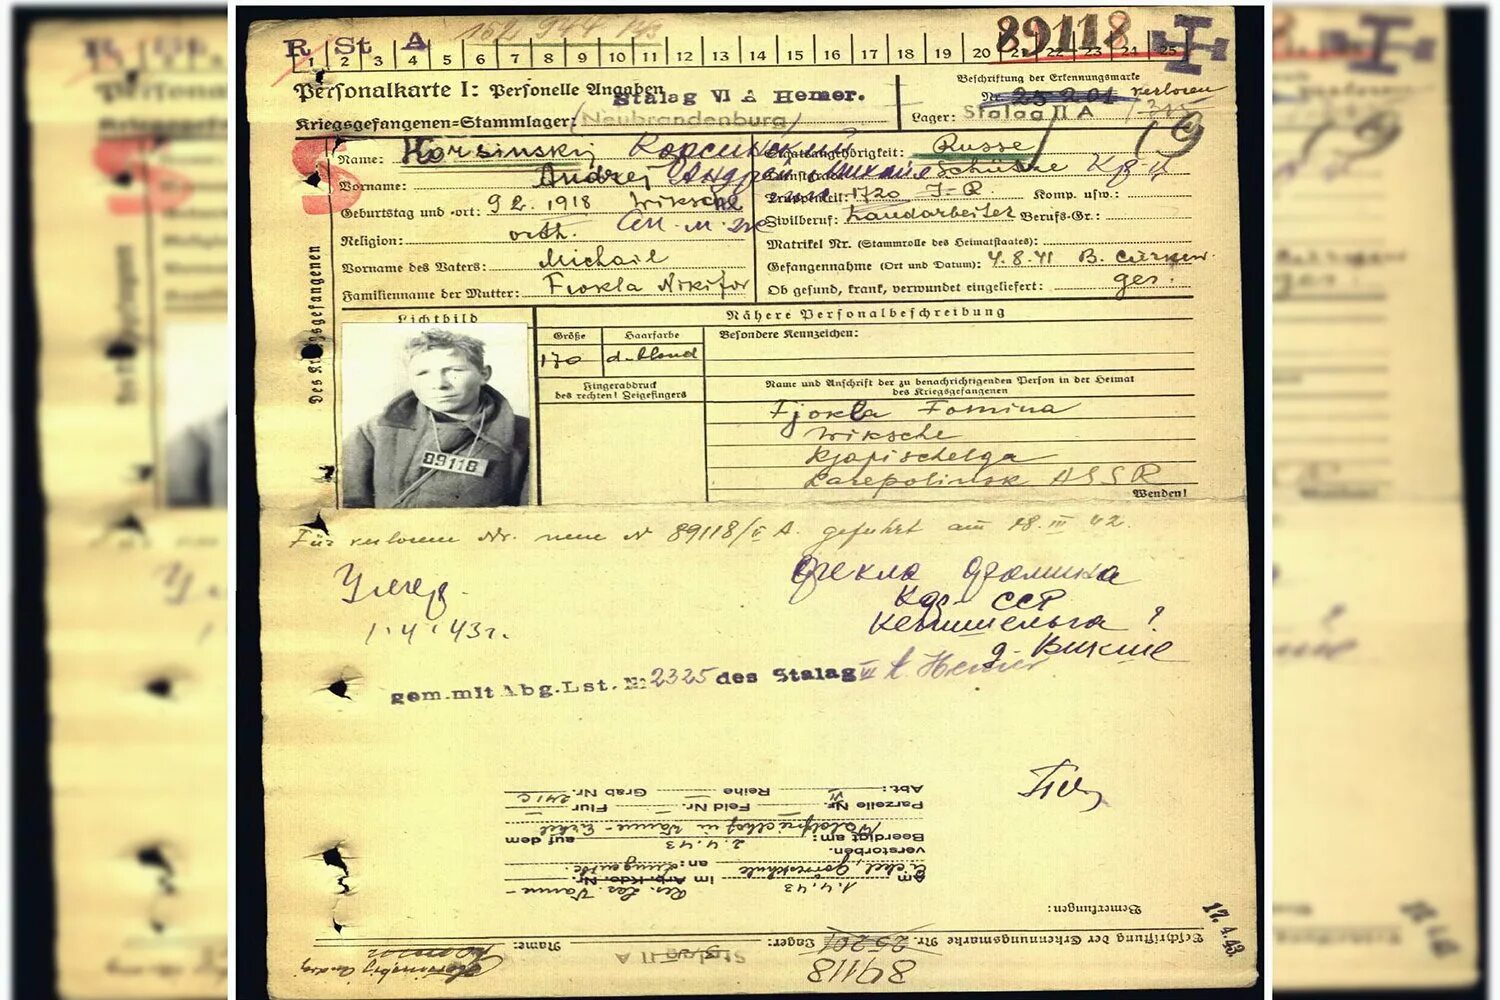 R St A 152 944
1 2 3 4 5 6 7 8 9 10 11 12 13 14 15 16 17 18 19 20 21 22 23 24 25
89118
Personalkarte I: Personelle Angaben
Stalag VI A Hemer.
Kriegsgefangenen-Stammlager: (Neubrandenburg)
Beschriftung der Erkennungsmarke
Nr. 25201 verloren
Lager: Stalag II A
Des Kriegsgefangenen
Name: Korsinskij Корсинский
Vorname: Andrej Андрей
Geburtstag und -ort: 9 2. 1918 Wiksche
Religion: orth.
Vorname des Vaters: Michail
Familienname der Mutter: Fiokla Nikifor
Staatsangehörigkeit: Russe
Dienstgrad: Schütze
Truppenteil: 1720 I-R Komp. usw.:
Zivilberuf: Landarbeiter Berufs-Gr.:
Matrikel Nr. (Stammrolle des Heimatstaates):
Gefangennahme (Ort und Datum): 4.8.41
Ob gesund, krank, verwundet eingeliefert: ges.
Lichtbild
89118
Nähere Personalbeschreibung
Größe Haarfarbe Besondere Kennzeichen:
170 d.-blond
Fingerabdruck
des rechten! Zeigefingers
Name und Anschrift der zu benachrichtigenden Person in der Heimat
des Kriegsgefangenen
Fjokla Fomina
Wiksche
Kjapischelga
ASSR
Wenden!
Für verlorene Nr. neue N 89118/II A. geführt am 18.III 42.
Умер.
1.4.43г.
Фекла Фомина
ССР
Кепшиельга ?
д. Викше
gem. mit Abg. Lst. № 2325 des Stalag VI A Hemer
Abt.: Reihe Grab Nr.
Parzelle Nr. Feld Nr. Flur 241c
Waldfriedhof in Wanne-Eickel
Beerdigt am: 2.4.43 auf dem
verstorben.
Eickel, an: Lungentbc.
Am 1.4.43 im Arb. Kdo. Nr. Res. Laz. Wanne-
Bemerkungen:
17.4.43
Beschriftung der Erkennungsmarke Nr. 25201 Lager: Stalag II A Name:
89118
Korsinskij Andrej